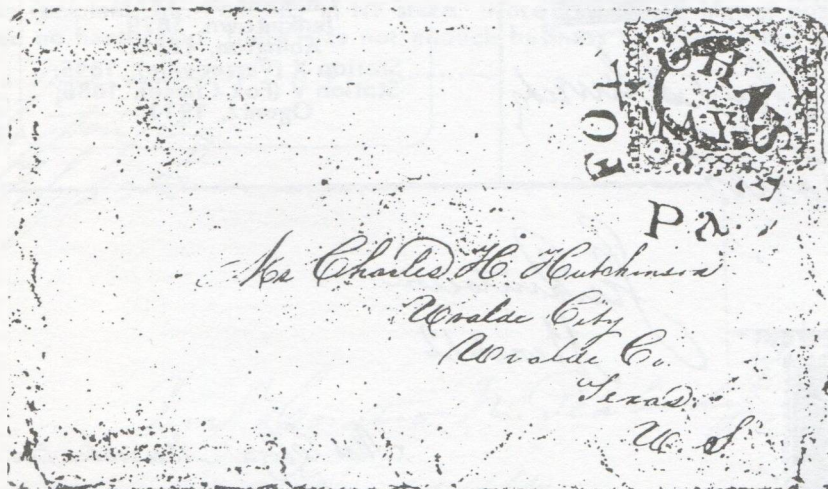 MAY
3
Pa.
Mr Charles H. Hutchinson
Uvalde City
Uvalde Co.
Texas
U. S